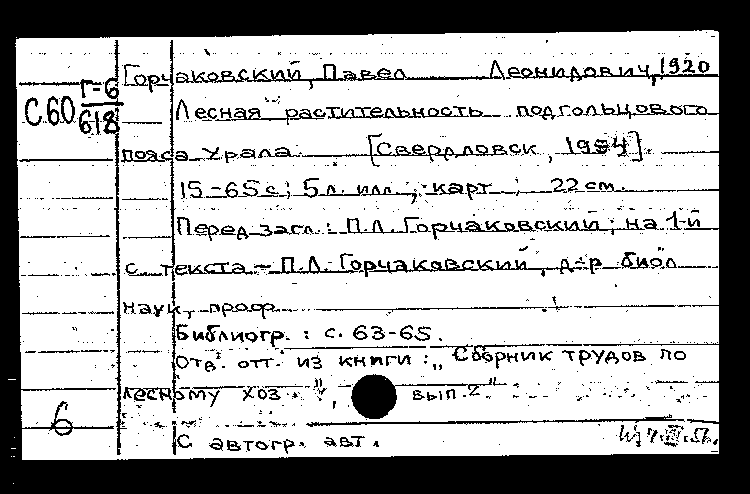 Горчаковский, Павел Леонидович, 1920
С60 Г-6/618
Лесная растительность подгольцового
пояса Урала [Свердловск, 1954].
15-65 с; 5 л. илл.; карт ; 22 см.
Перед загл.: П.Л. Горчаковский; на 1-й
с текста - П.Л. Горчаковский, д-р биол
наук, проф
Библиогр. : с. 63-65.
Отд. отт. из книги : „Сборник трудов по
лесному хоз.", вып. 2"
6
С автогр. авт.